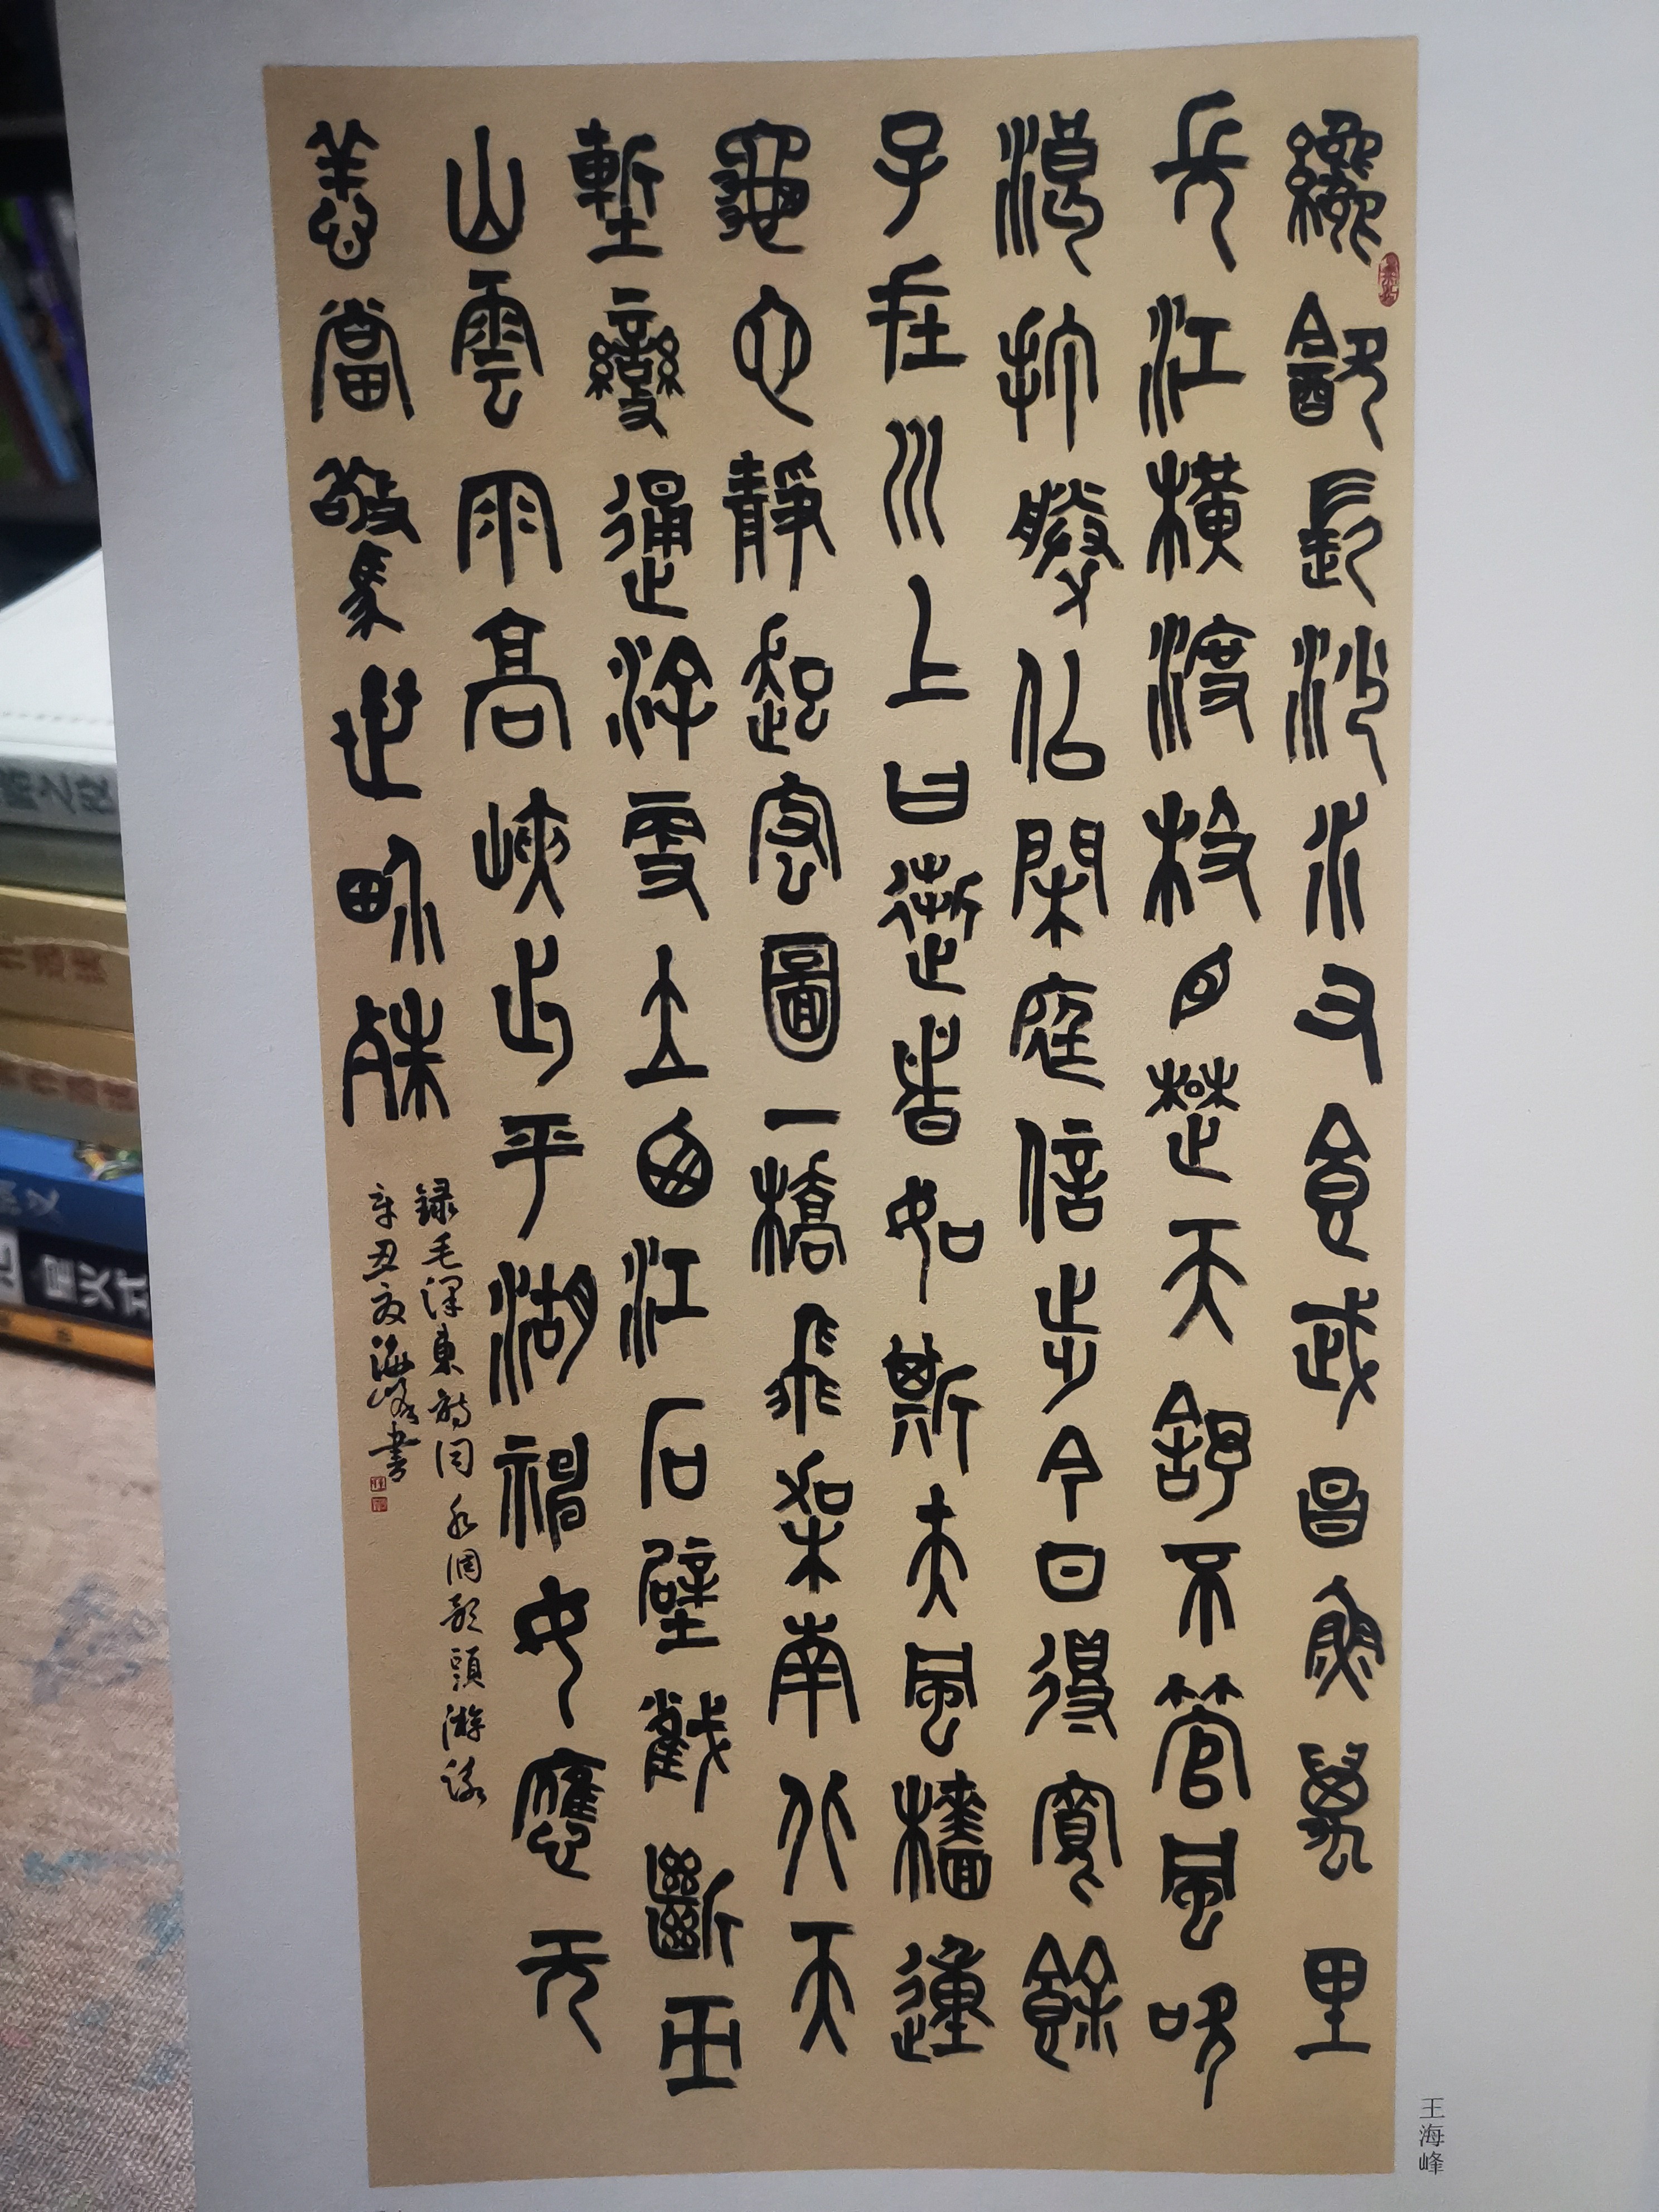 纔飲長沙水又食武昌魚萬里
長江橫渡極目楚天舒不管風吹
浪打勝似閑庭信步今日得寬餘
子在川上曰逝者如斯夫風檣動
龜也靜起宏圖一橋飛架南北天
塹變通途更立西江石壁截斷巫
山雲雨高峽出平湖神女應无
恙當驚世界殊
錄毛澤東詩詞水調歌頭游泳
辛丑夏海峰書
王海峰